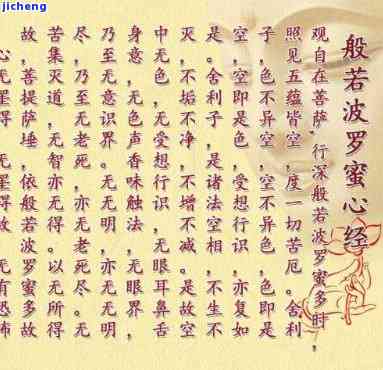 jicheng
般若波罗蜜心经
观自在菩萨，行深般若波罗蜜多时，
照见五蕴皆空，度一切苦厄。舍利
子，色不异空，空不异色，色即是
空，空即是色，受想行识，亦复如
是。舍利子，是诸法空相，不生不
灭，不垢不净，不增不减。是故空
中无色，无受想行识，无眼耳鼻舌
身意，无色声香味触法，无眼界，
乃至无意识界。无无明，亦无无明
尽，乃至无老死，亦无老死尽。无
苦集灭道，无智亦无得。以无所得
故，菩提萨埵，依般若波罗蜜多故